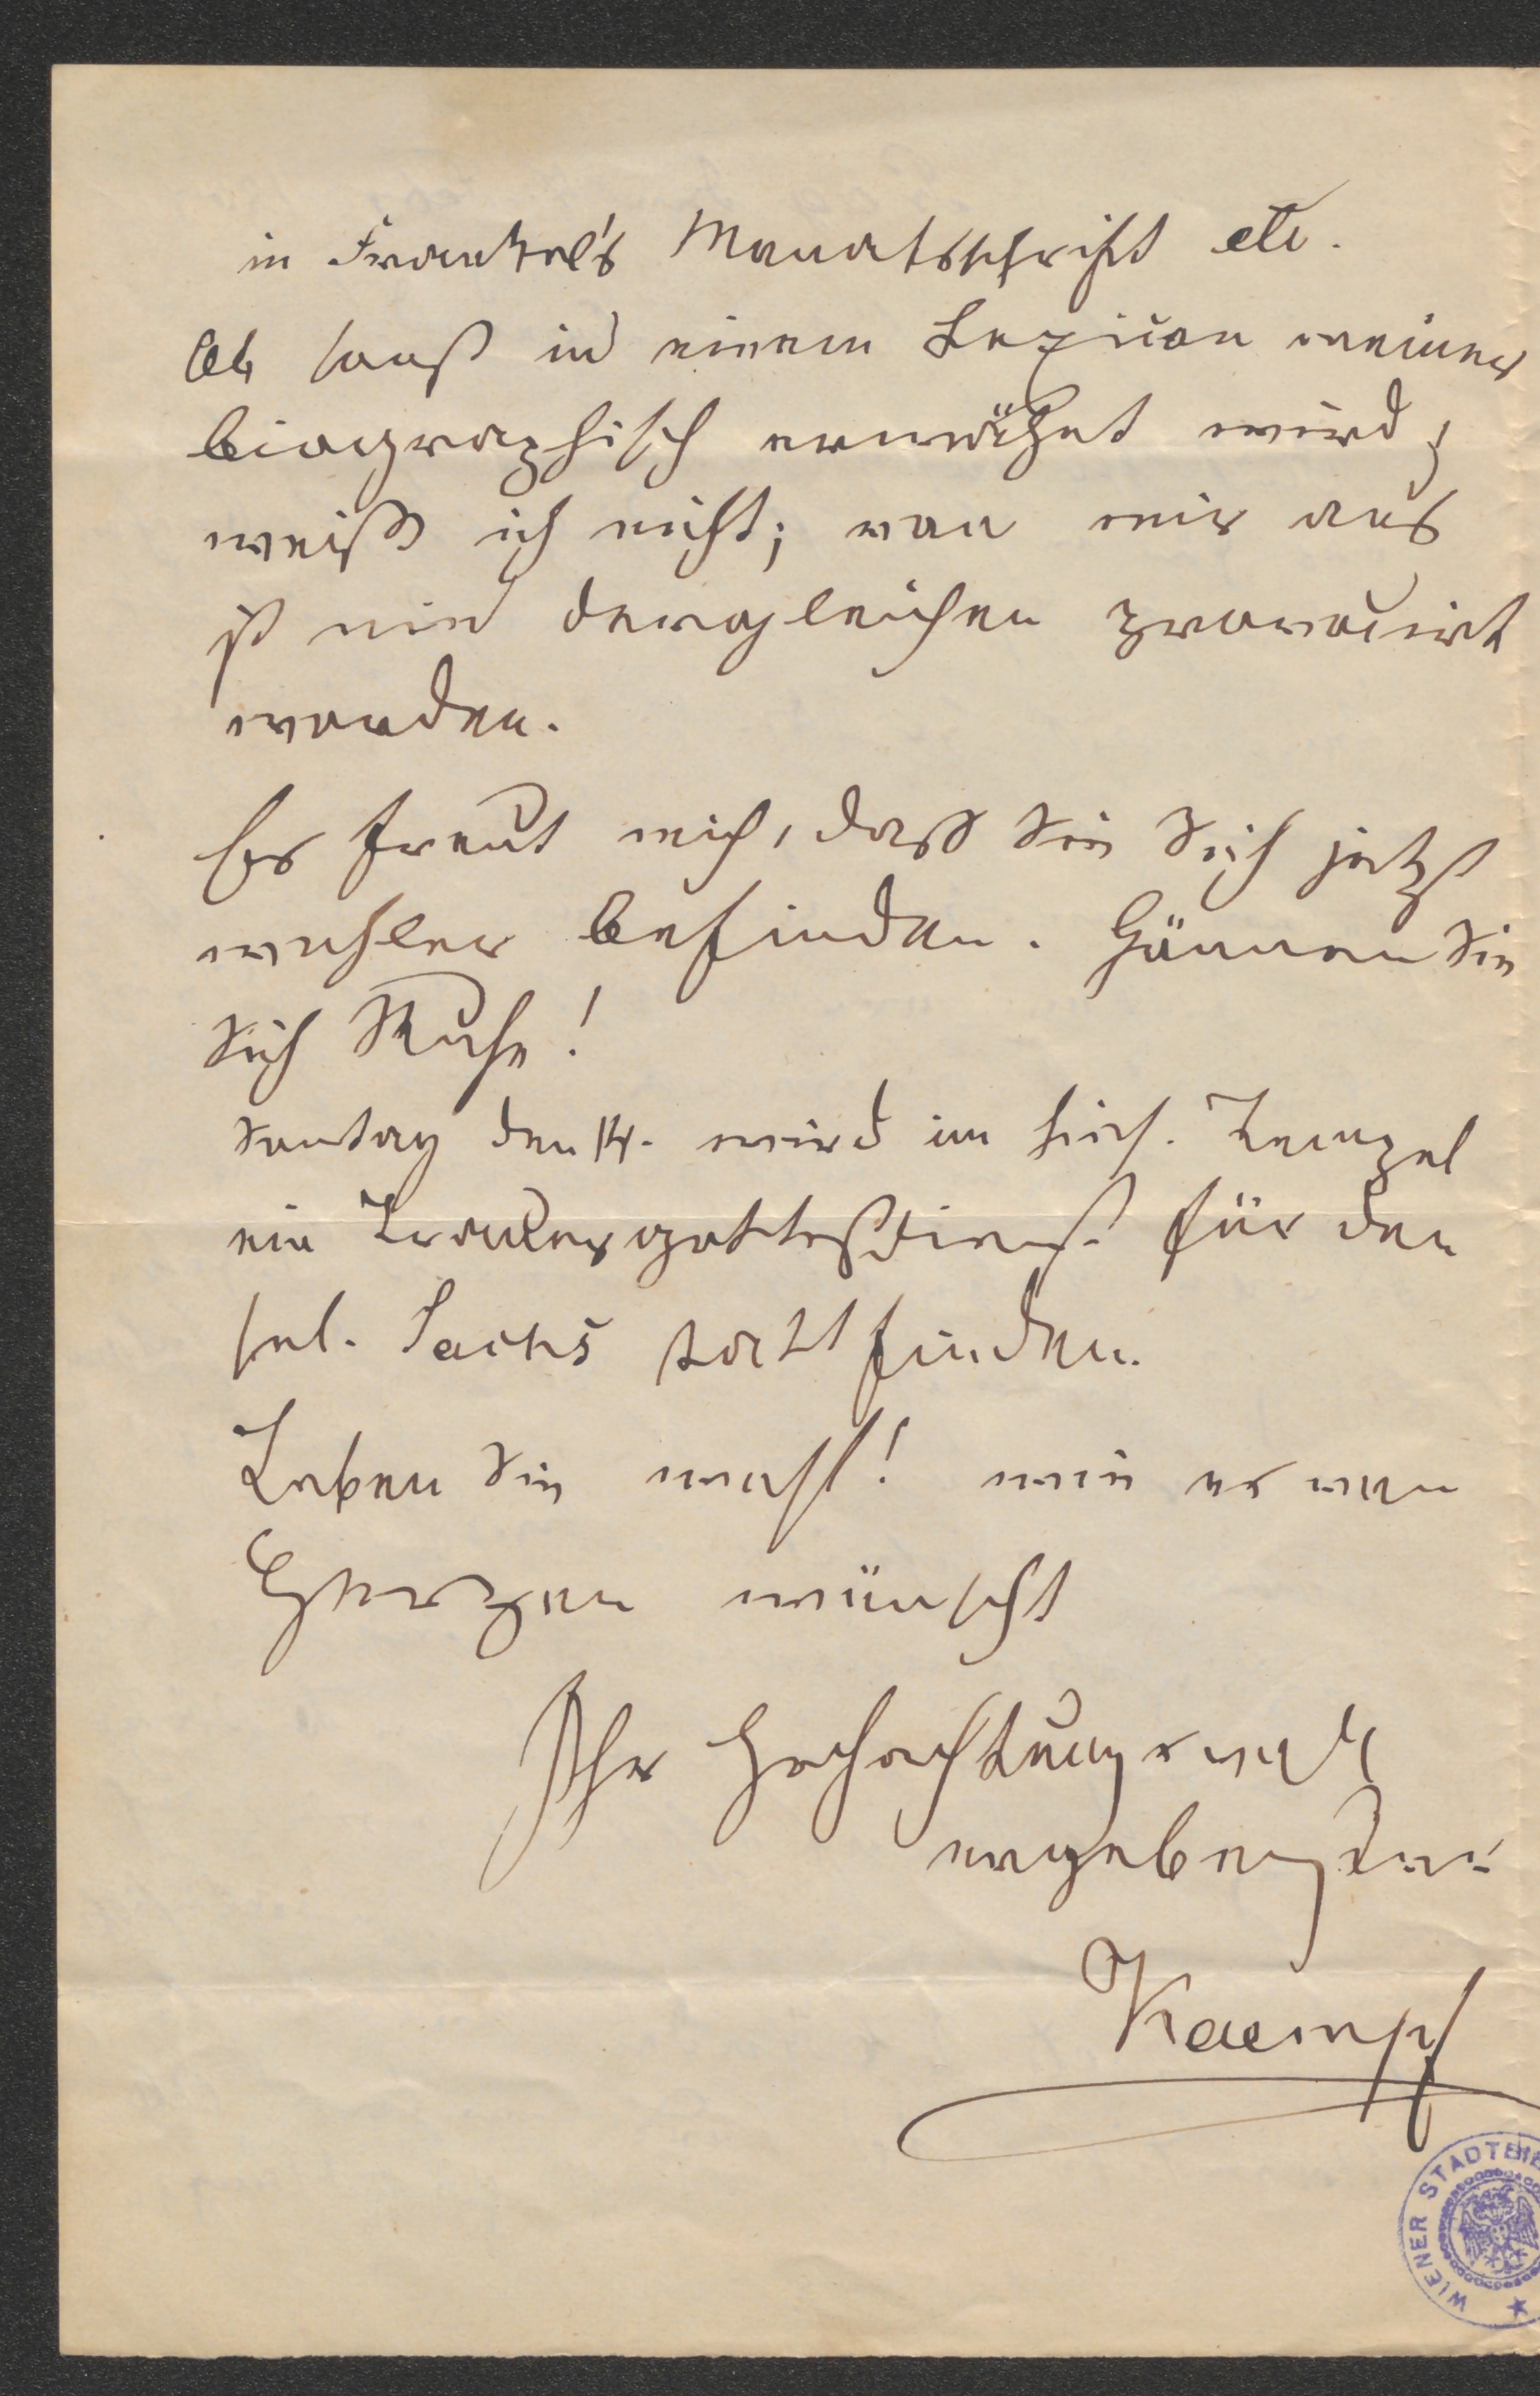 in Frankel's Monatsschrift etc.
Ob sonst in einem Lexicon meiner
biographisch erwähnt wird,
weiß ich nicht; von mir aus
ist nie dergleichen provocirt
worden.
Es freut mich, daß Sie Sich jetzt
wohler befinden. Gönnen Sie
Sich Ruhe!
Sontag den 14. wird im hies. Tempel
ein Trauergottesdienst für den
sel. Sachs stattfinden.
Leben Sie wohl! wie es von
Herzen wünscht
Ihr hochachtungsvoll
ergebenster
Kaempf
WIENER STADTBI